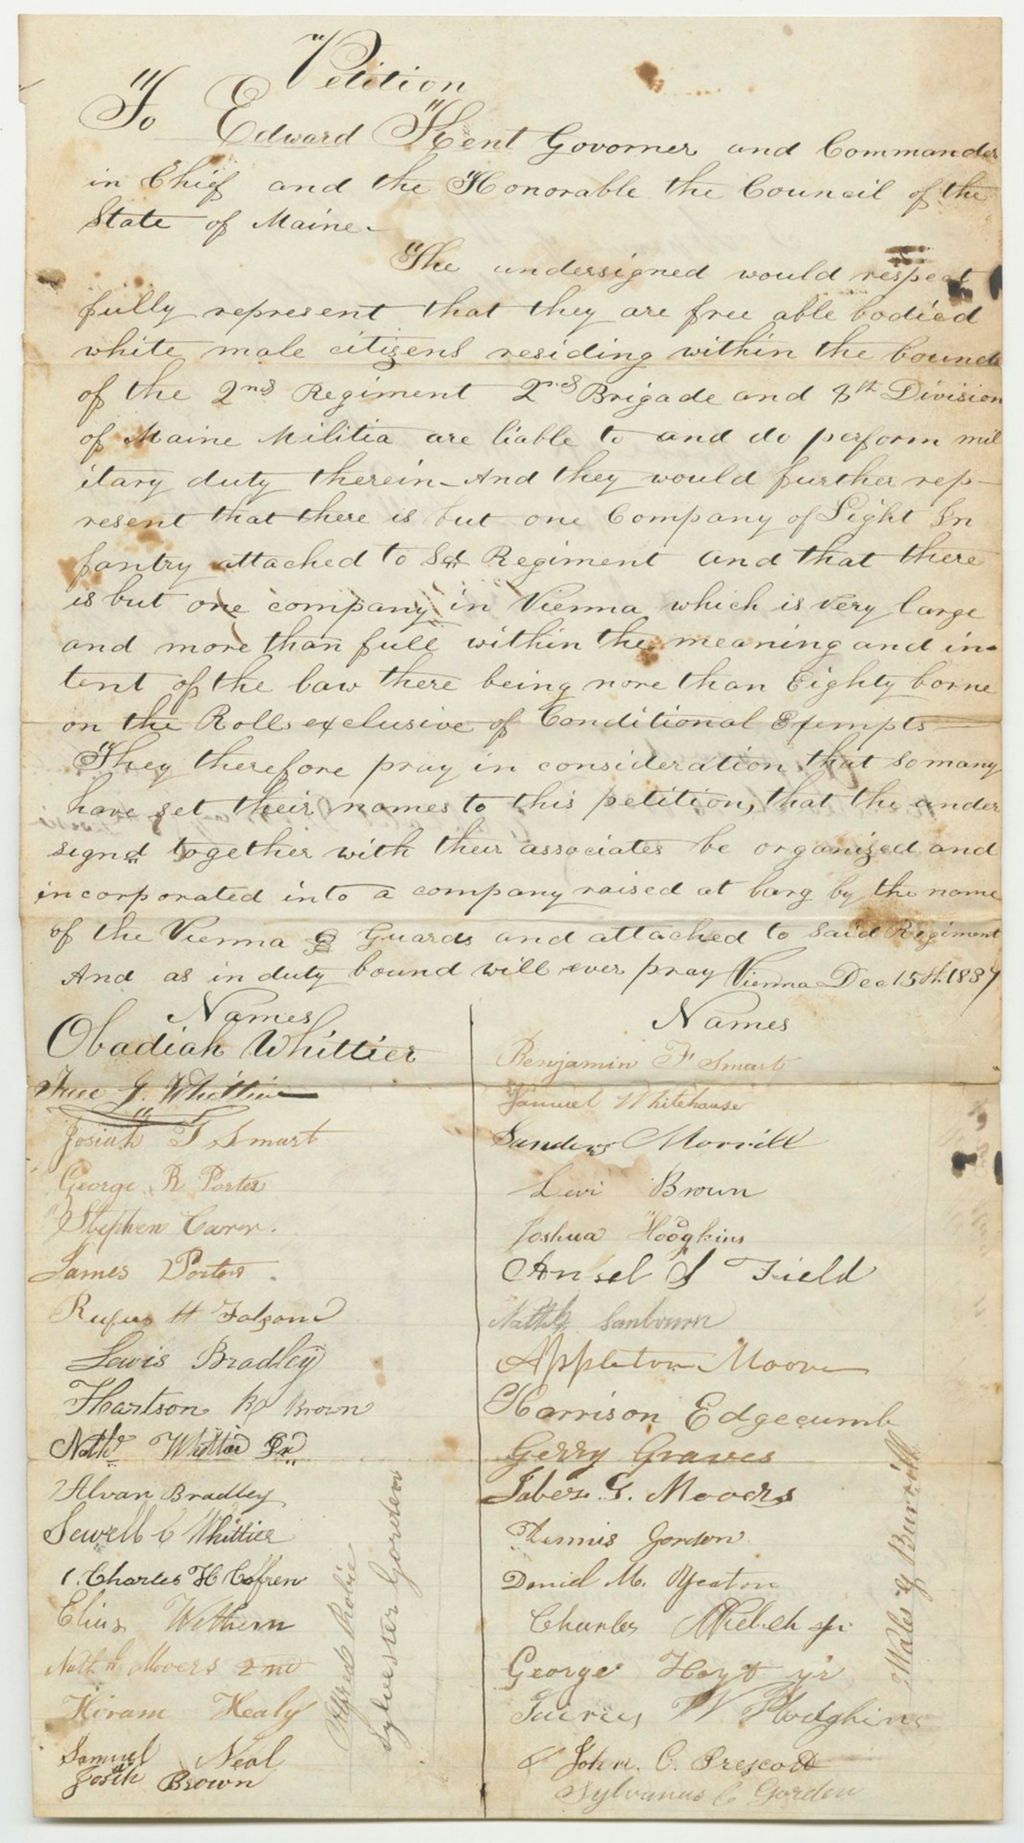 Petition
To Edward Kent Govorner and Commander
in Chief and the Honorable the Council of the
State of Maine.
The undersigned would respect
fully represent that they are free able bodied
white male citizens residing within the bounds
of the 2nd Regiment 2nd Brigade and 8th Division
of Maine Militia are liable to and do perform mil
itary duty therein - And they would further rep-
resent that there is but one Company of Light In
fantry attached to Sd Regiment and that there
is but one company in Vienna which is very large
and more than full within the meaning and in-
tent of the law there being more than Eighty borne
on the Roll exclusive of Conditional Exempts
They therefore pray in consideration that so many
have set their names to this petition, that the under
signd together with their associates be organized and
incorporated into a company raised at larg by the name
of the Vienna Guards and attached to said Regiment
And as in duty bound will ever pray Vienna Dec 15th 1837
Names
Obadiah Whittier
G. Whittier
Josiah F Smart
George R Porter
Stephen Carr.
James Porter.
Rufus H Folsom
Lewis Bradley
Hartson Brown
Nathl Whittier
Alvan Bradley
Sewell C Whittier
Charles H Cofren
Elias Withern
Nathl Movers 2nd
Hiram Healy
Samuel Neal
Josiah Brown
Alfred
Sylvester Gorden
Names
Benjamin F Smart
Samuel Whitehouse
Sanders Morrill
Levi Brown
Joshua Hodgkins
Ansel S Field
Nathl Sanbourn
Appleton Moore
Harrison Edgecumb
Gerry Graves
Jabez G. Moores
Gordon
Daniel M. Yeaton
Charles jr
George Hoyt jr
W Hodgkins
John. C. Prescott
Sylvanus C Gorden
Wales G Burrill